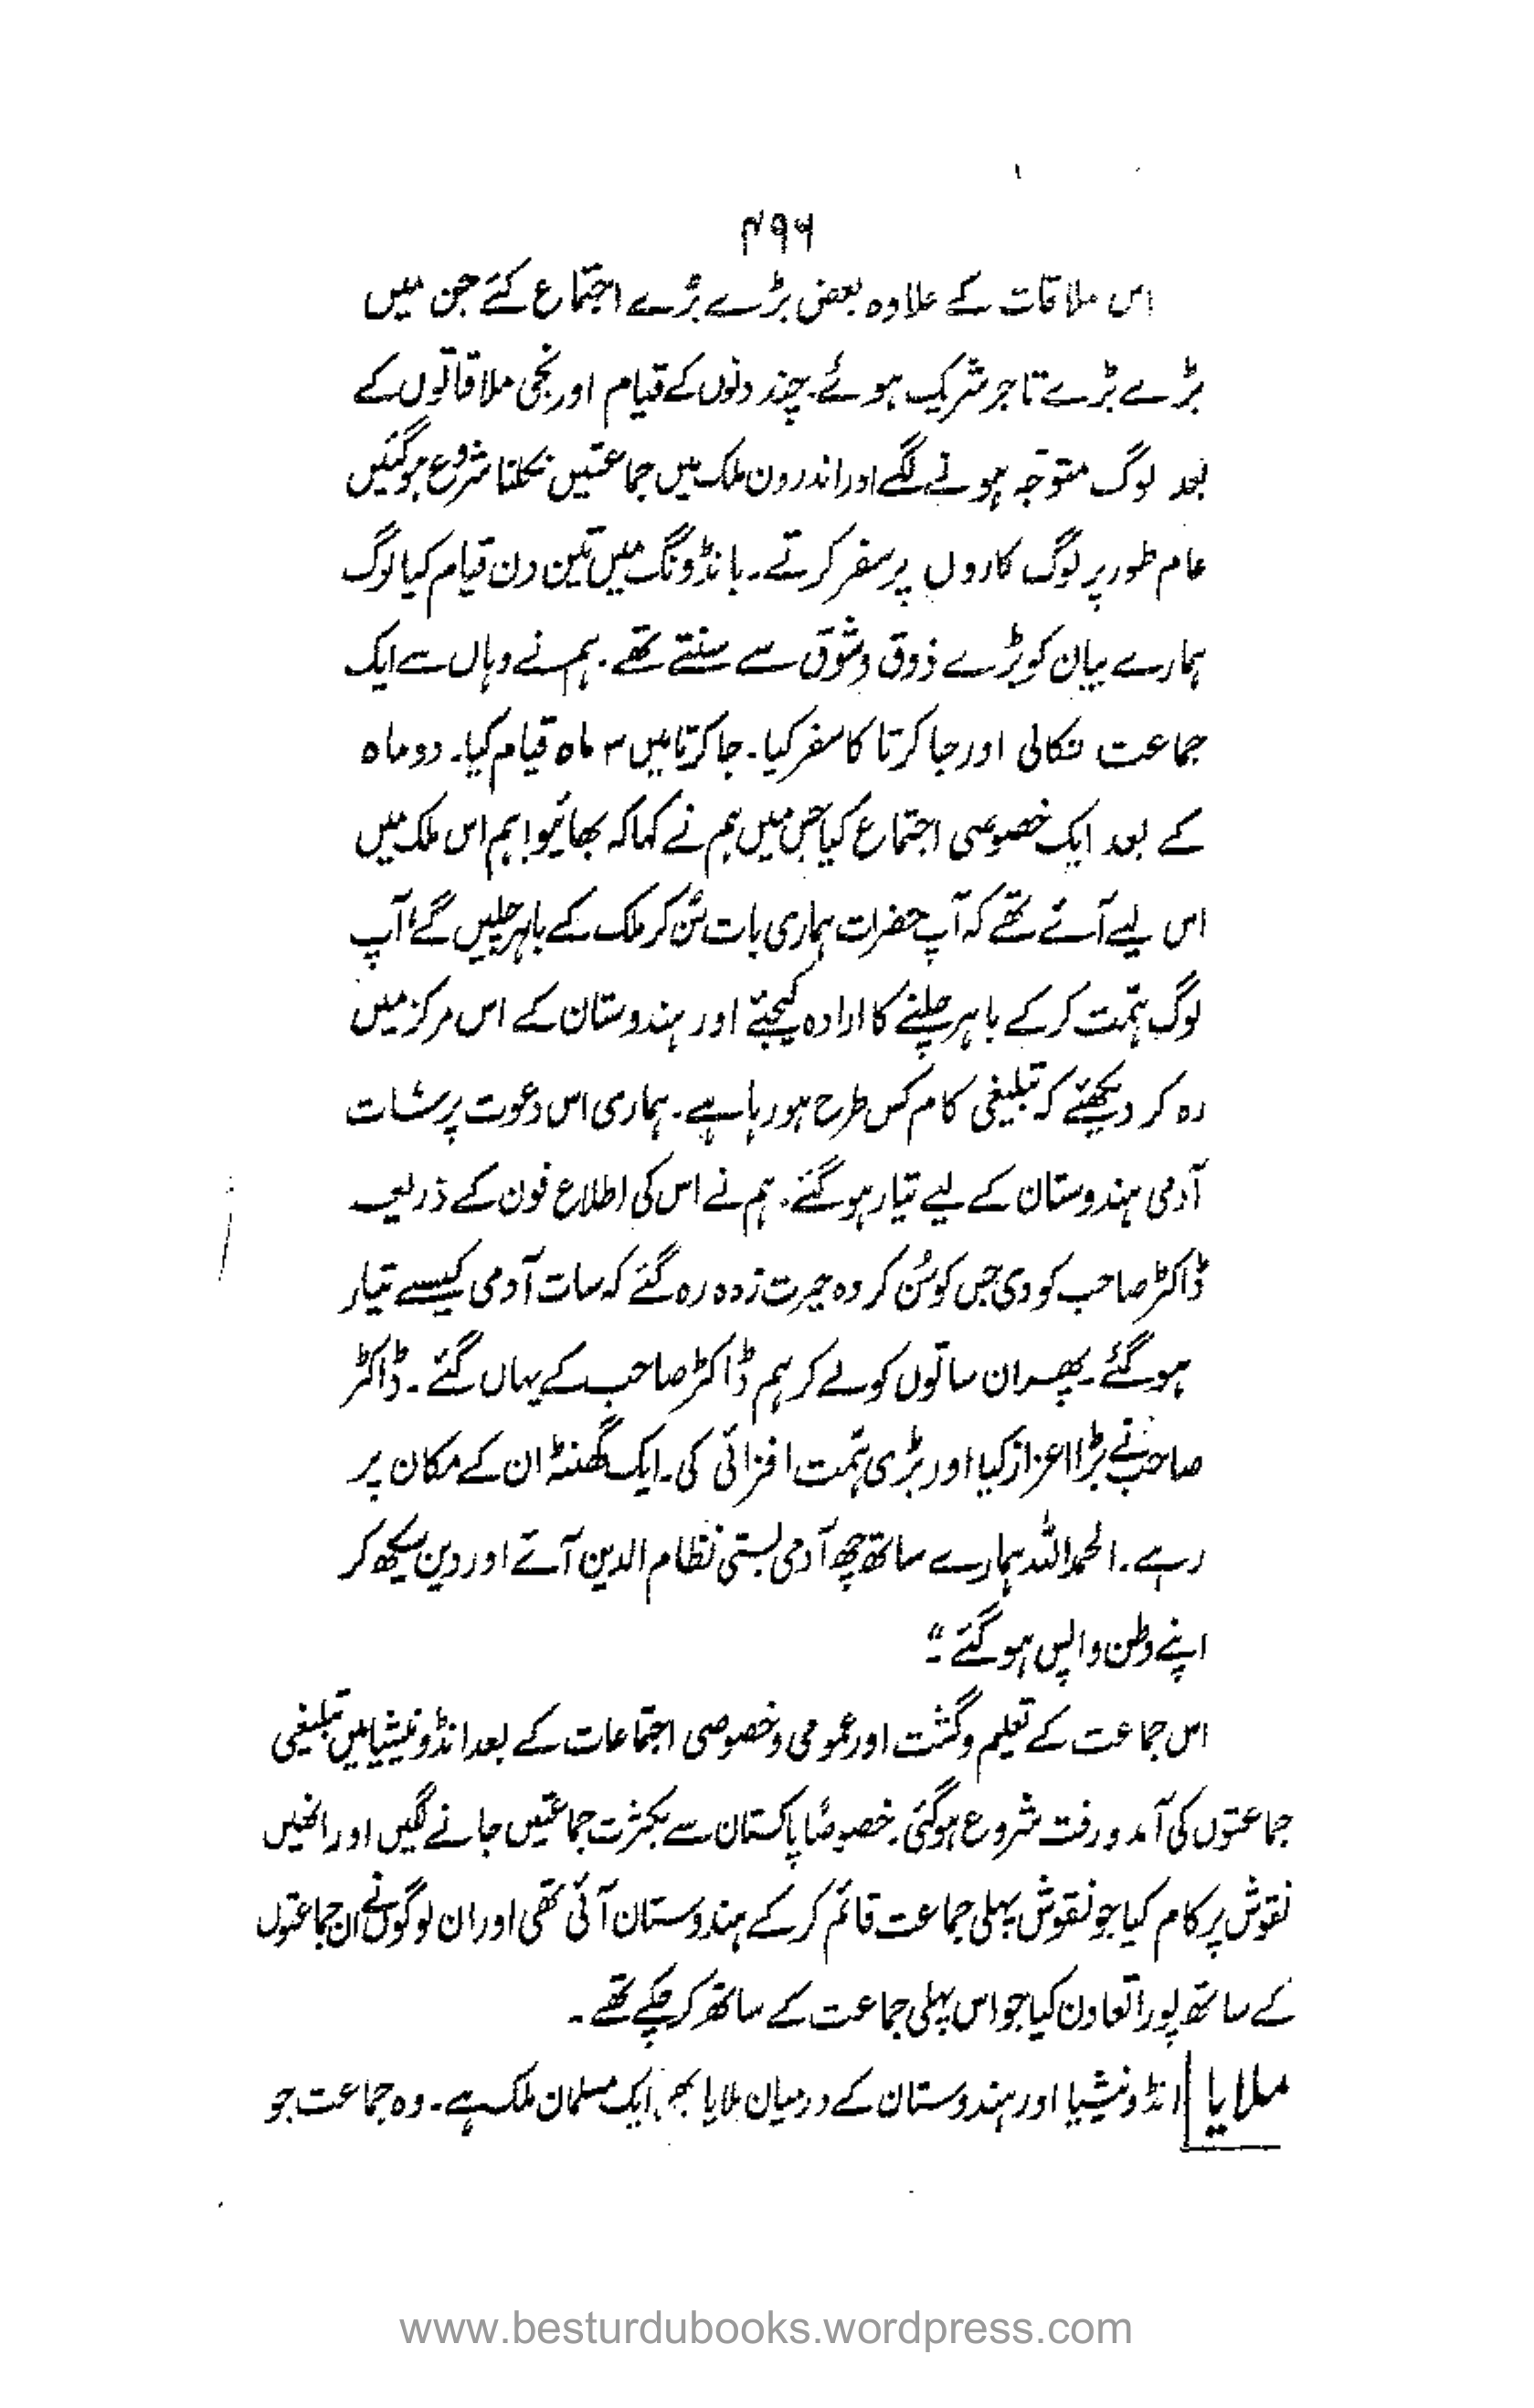 ۴۹۶
اس ملاقات کے علاوہ بعض بڑے بڑے اجتماع کئے جن میں
بڑے بڑے تاجر شریک ہوئے۔ چند دنوں کے قیام اور نجی ملاقاتوں کے
بعد لوگ متوجّہ ہونے لگے اور اندرون ملک میں جماعتیں نکلنا شروع ہوگئیں
عام طور پر لوگ کاروں پر سفر کرتے۔ بانڈونگ میں تین دن قیام کیا لوگ
ہمارے بیان کو بڑے ذوق و شوق سے سنتے تھے۔ ہم نے وہاں سے ایک
جماعت نکالی اور جاکرتا کا سفر کیا۔ جاکرتا میں ۳ ماہ قیام کیا۔ دو ماہ
کے بعد ایک خصوصی اجتماع کیا جس میں ہم نے کہا کہ بھائیو! ہم اس ملک میں
اس لیے آئے تھے کہ آپ حضرات ہماری بات سُن کر ملک کے باہر چلیں گے! آپ
لوگ ہمّت کرکے باہر چلنے کا ارادہ کیجئے اور ہندوستان کے اس مرکز میں
رہ کر دیکھئے کہ تبلیغی کام کس طرح ہو رہا ہے۔ ہماری اس دعوت پر سات
آدمی ہندوستان کے لیے تیار ہوگئے۔ ہم نے اس کی اطلاع فون کے ذریعہ
ڈاکٹر صاحب کو دی جس کو سُن کر وہ حیرت زدہ رہ گئے کہ سات آدمی کیسے تیار
ہوگئے۔ پھر ان ساتوں کو لے کر ہم ڈاکٹر صاحب کے یہاں گئے۔ ڈاکٹر
صاحب نے بڑا اعزاز کیا اور بڑی ہمّت افزائی کی۔ ایک گھنٹہ ان کے مکان پر
رہے۔ الحمدللہ ہمارے ساتھ چھ آدمی بستی نظام الدین آئے اور دین سیکھ کر
اپنے وطن واپس ہوگئے۔“
اس جماعت کے تعلیم و گشت اور عمومی و خصوصی اجتماعات کے بعد انڈونیشیا میں تبلیغی
جماعتوں کی آمد و رفت شروع ہوگئی۔ خصوصًا پاکستان سے بکثرت جماعتیں جانے لگیں اور انھیں
نقوش پر کام کیا جو نقوش پہلی جماعت قائم کرکے ہندوستان آئی تھی اور ان لوگوں نے ان جماعتوں
کے ساتھ پورا تعاون کیا جو اس پہلی جماعت کے ساتھ کرچکے تھے۔
ملایا انڈونیشیا اور ہندوستان کے درمیان ملایا بھی ایک مسلمان ملک ہے۔ وہ جماعت جو
www.besturdubooks.wordpress.com